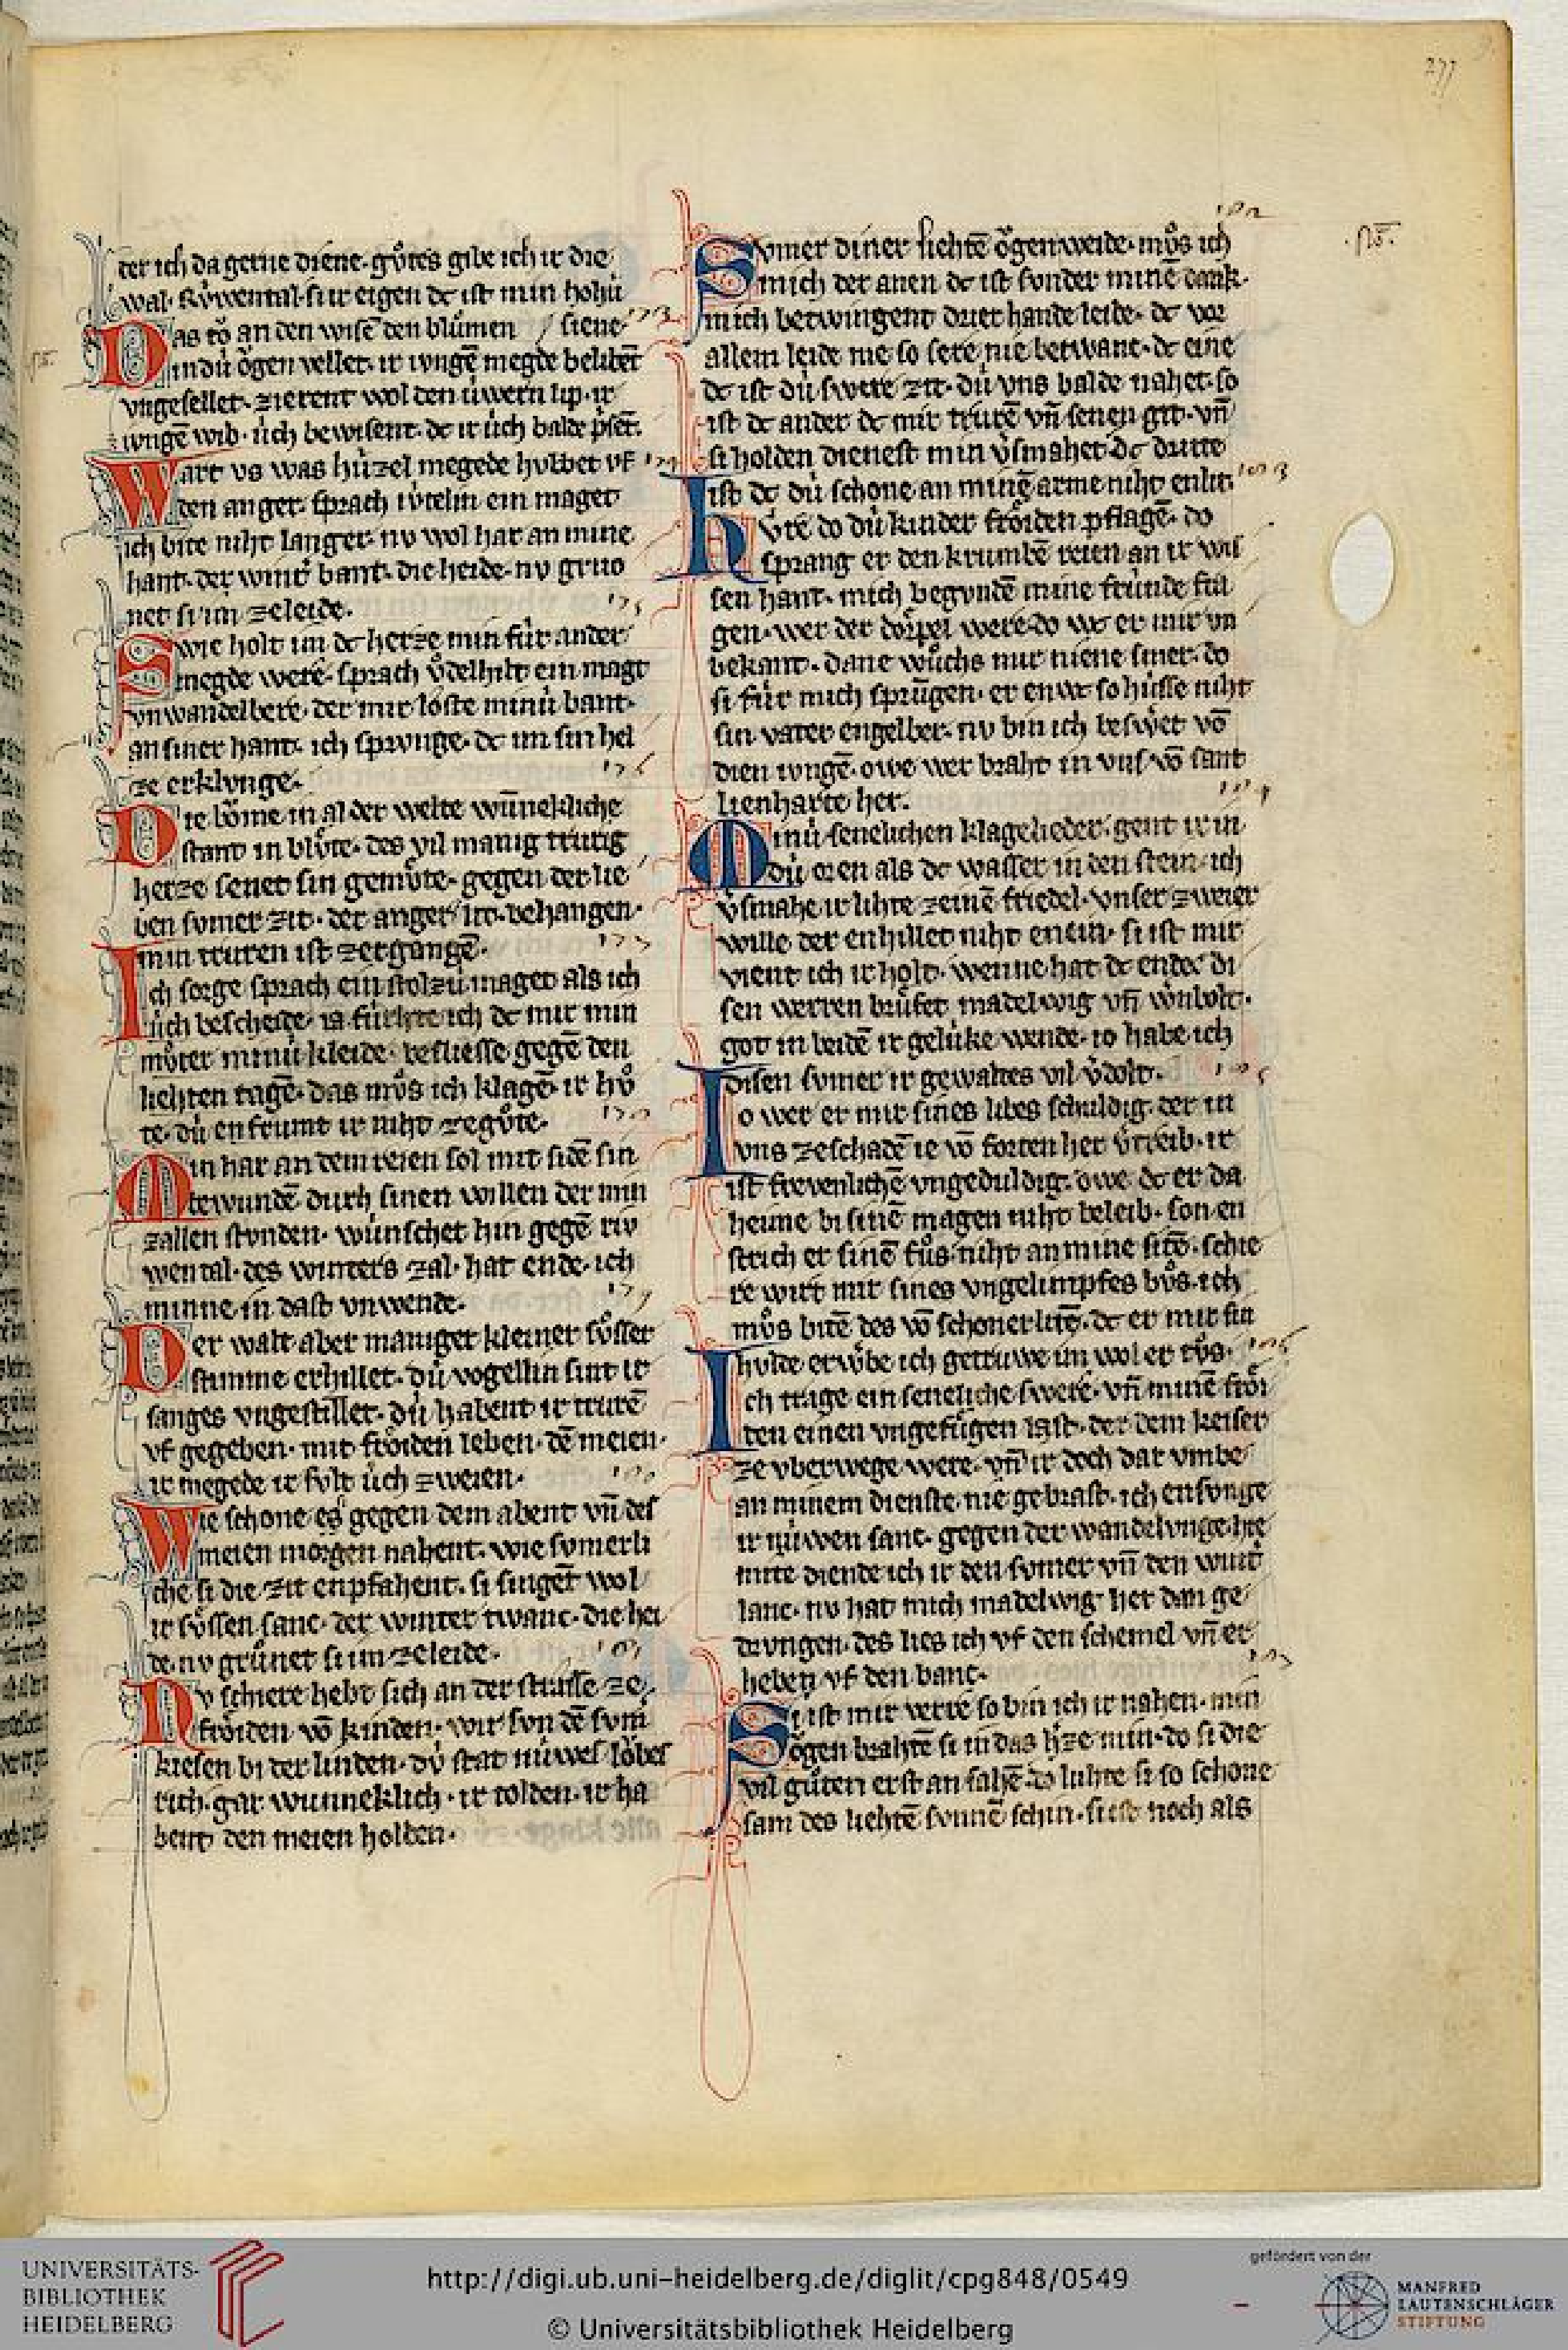 277
der ich da gerne diene· gůtes gibe ich ir die
wal· Rúwental· si ir eigen dc ist min hohú
Das tŏ an den wisē den blůmen / siene·
in dú ŏgen vellet· ir iungē megde belibēt
vngesellet· zierent wol den úwern lip· ir
iungē wib· úch bewisent· dc ir úch balde p̱sēt·
Wart vs was húzel megede hvlbet vf
den anger· sprach iv̊telin ein maget
ich bite niht langer· nv wol har an mine
hant· der wint͛ bant· die heide· nv gruo
net si im zeleide·
Swie holt im dc herze min fúr ander
megde were· sprach v̊delhilt ein magt
vnwandelbere· der mir loste minú bant·
an siner hant· ich sprvnge· dc im sin hel
ze erklvnge·
Die bŏme in al der welte wūnekliche
stant in blůte· des vil manig trurig
herze senet sin gemůte· gegen der lie
ben svmer zit· der anger lit· behangen·
min truren ist zergangē·
Ich sorge sprach ein stolzú maget als ich
úch bescheide· ia fúrhte ich dc mir min
můter minú kleide· besliesse gegē den
liehten tagē· das mv̊s ich klagē· ir hv̊
te· dú enfrumt ir niht zegůte·
Min har an dem reien sol mit sidē sin
bewundē durch sinen willen der min
zallen stvnden· wúnschet hin gegē riv
wental· des winters zal· hat ende· ich
minne in dast vnwende·
Der walt aber maniger kleiner sůsser
stimme erhillet· dú vogellin sint ir
sanges vngestillet· dú habent ir trurē
vf gegeben· mit frŏiden leben· dē meien·
ir megede ir svlt úch zweien·
Wie schone es gegen dem abent vn̄ des
meien morgen nahent· wie svmerli
che si die zit enpfahent· si singēt wol
ir sůssen sanc· der winter twanc· die hei
de· nv grůnet si im zeleide·
Nv schiere hebt sich an der strasse ze
frŏiden vō kinden· wir svn dē svm͛
kiesen bi der linden· dú stat núwes lŏbes
rich· gar wunneklich· ir tolden· ir ha
bent den meien holden·
.no.
Svmer diner liehtē ŏgenweide· mv̊s ich
mich der anen dc ist svnder minē dank·
mich betwingent drier hande leide· dc vor
allem leide me so sere nie betwanc· dc eine
dc ist dú swere zit· dú vns balde nahet· so
ist dc ander dc mir trurē vn̄ senen git· vn̄
si holden dienest min v͛smahet· dc dritte
ist dc dú schone an minē arme niht enlit·
Hv̊te do dú kinder frŏiden pflagē· do
sprang er den krumbē reien an ir wis
sen hant· mich begvndē mine frúnde fra
gen· wer der dorpel were· do wc er mir vn
bekant· dane wůchs mir niene smer· do
si fúr mich sprūgen· er enwc so hússe niht
sin vater engelber· nv bin ich beswēt vō
dien iungē· owe wer braht in vns vō sant
lienharte her·
Minú senelichen klagelieder· gent ir in
dú oren als dc wasser in den stein· ich
v͛smahe ir lihte zeinē friedel· vnser zweier
wille der enhillet niht enein· si ist mir
vient ich ir holt· wenne hat dc ende· di
sen werren brůfet madelwig vn̄ wīnbolt·
got in beidē ir gelúke wende· io habe ich
disen svmer ir gewaltes vil v͛dolt·
Io wer er mir sines libes schuldig· der in
vns zeschadē ie vō forten her v͛treib· er
ist frevenlichē vngeduldig· owe dc er da
heime bi sinē magen niht beleib· son en
strich er sinē fůs niht an mine sitē· schie
re wirt mir sines vngelimpfes bůs· ich
mv̊s bitē des vō schonerlitē· dc er mir sin
hvlde erwȯbe ich getruwe im wol er tůs·
Ich trage ein seneliche swere· vn̄ minē frŏi
den einen vngefůgen last· der dem keiser
ze vberwege were· vn̄ ir doch dar vmbe
an minem dienste nie gebrast· ich ensvnge
ir núwen sanc· gegen der wandelvnge· hie
mite diende ich ir den svmer vn̄ den wint͛
lanc· nv hat mich madelwig her dan ge
drvngen· des lies ich vf den schemel vn̄ er
heben vf den banc·
Si ist mir verre so bin ich ir nahen· min
ŏgen brahtē si in das h͛ze min· do si die
vil gůten erst an sahē· do luhte si so schone
sam des liehtē svnnē schin· si ist noch als
UNIVERSITÄTS-
BIBLIOTHEK
HEIDELBERG
http://digi.ub.uni-heidelberg.de/diglit/cpg848/0549
© Universitätsbibliothek Heidelberg
gefördert von der
MANFRED
LAUTENSCHLÄGER
STIFTUNG